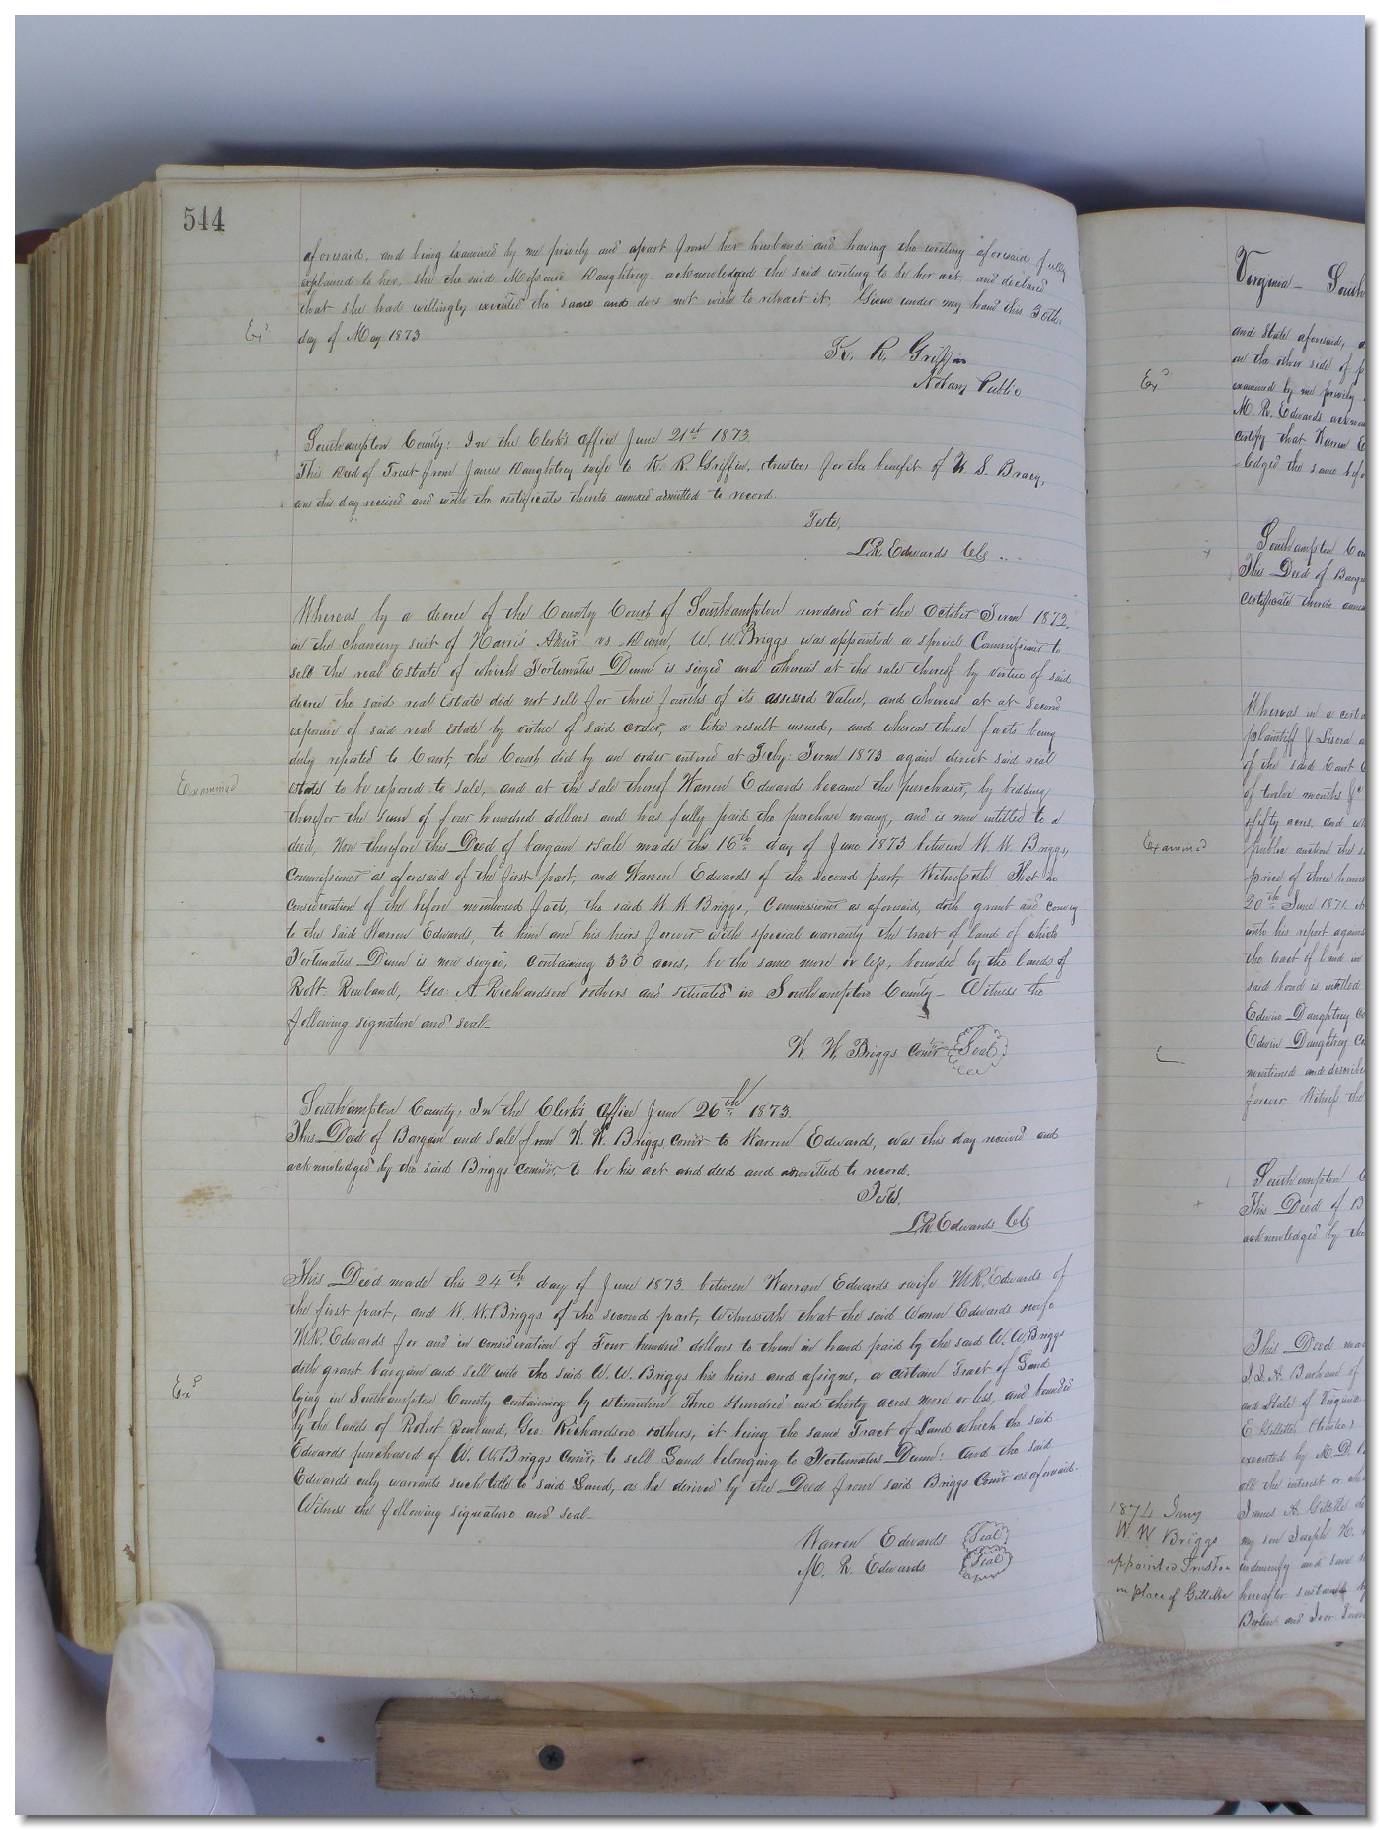 544
aforesaid, and being examined by me privily and apart from her husband and having the writing aforesaid fully
explained to her, she the said Daughtrey acknowledged the said writing to be her act, and declared
that she had willingly executed the same and does not wish to retract it. Given under my hand this 30th
Exd
day of May 1873
K. R. Griffin
Notary Public
Southampton County: In the Clerk's Office June 21st 1873
This Deed of Trust from James Daughtrey & wife to K. R. Griffin, trustee for the benefit of S. Bracy,
was this day received and with the certificates thereto annexed admitted to record.
Teste,
L. R. Edwards Clk
Whereas by a decree of the County Court of Southampton rendered at the October Term 1872
in the chancery suit of Harris Admr vs Dunn, W. W. Briggs was appointed a special Commissioner to
sell the real Estate of which Fortunatus Dunn is seized and whereas at the sale thereof by virtue of said
decree the said real Estate did not sell for three fourths of its assessed value, and whereas at at second
exposure of said real estate by virtue of said order, a like result ensued, and whereas these facts being
duly reported to Court, the Court did by an order entered at Feby: Term 1873 again direct said real
Examined
estate to be exposed to sale, and at the sale thereof Warren Edwards became the purchaser, by bidding
therefor the sum of four hundred dollars and has fully paid the purchase money, and is now intitled to a
deed, Now therefore this Deed of bargain & sale made this 16th day of June 1873 between W. W. Briggs,
Commissioner as aforesaid of the first part, and Warren Edwards of the second part, Witnesseth That in
consideration of the before mentioned facts, the said W. W. Briggs, Commissioner as aforesaid, doth grant and convey
to the said Warren Edwards, to him and his heirs forever with special warranty the tract of land of which
Fortunatus Dunn is now seized, containing 330 acres, be the same more or less, bounded by the lands of
Robt. Rowland, Geo. A. Richardson & others and situated in Southampton County- Witness the
following signature and seal-
W. W. Briggs Comr Seal
Southampton County, In the Clerk's Office June 26th 1873.
This Deed of Bargain and Sale from W. W. Briggs Comr to Warren Edwards, was this day received and
acknowledged by the said Briggs Comr to be his act and deed and admitted to record.
Teste,
L. R. Edwards Clk
This Deed made this 24th day of June 1873 between Warren Edwards & wife M. R. Edwards of
the first part, and W. W. Briggs of the second part, Witnesseth that the said Warren Edwards & wife
M. R. Edwards for and in consideration of Four hundred dollars to them in hand paid by the said W. W. Briggs
doth grant bargain and sell unto the said W. W. Briggs his heirs and assigns, a certain Tract of Land
Exd
lying in Southampton County containing by estimation Three Hundred and thirty acres more or less, and bounded
by the lands of Robert Rowland, Geo. Richardson & others, it being the same Tract of Land which the said
Edwards purchased of W. W. Briggs Comr, to sell Land belonging to Fortunatus Dunn: And the said
Edwards only warrants such title to said Land, as he derived by the Deed from said Briggs Comr as aforesaid.
Witness the following signature and seal-
Warren Edwards Seal
M. R. Edwards Seal
Virginia - South
and State aforesaid,
on the other side of
Exd
examined by me privily
M. R. Edwards
certify that Warren
ledged the same
Southampton
This Deed of
certificate
Whereas in a
plaintiff
of the said
of twelve months
fifty acres, and
Examined
public auction the
price of three
20th June 1871
with his report
the tract of land in
said land is
Edwin Daughtrey
Edwin Daughtrey
mentioned and
forever. Witness the
Southampton
This Deed of B
acknowledged by the
This Deed
Barham of
and State of Virginia
E. Gillette
executed by
all the interest
1874 Jany
James A. Gillette
W. W. Briggs
my son Joseph H.
appointed Trustee
indemnify and save
in place of Gillette
hereafter